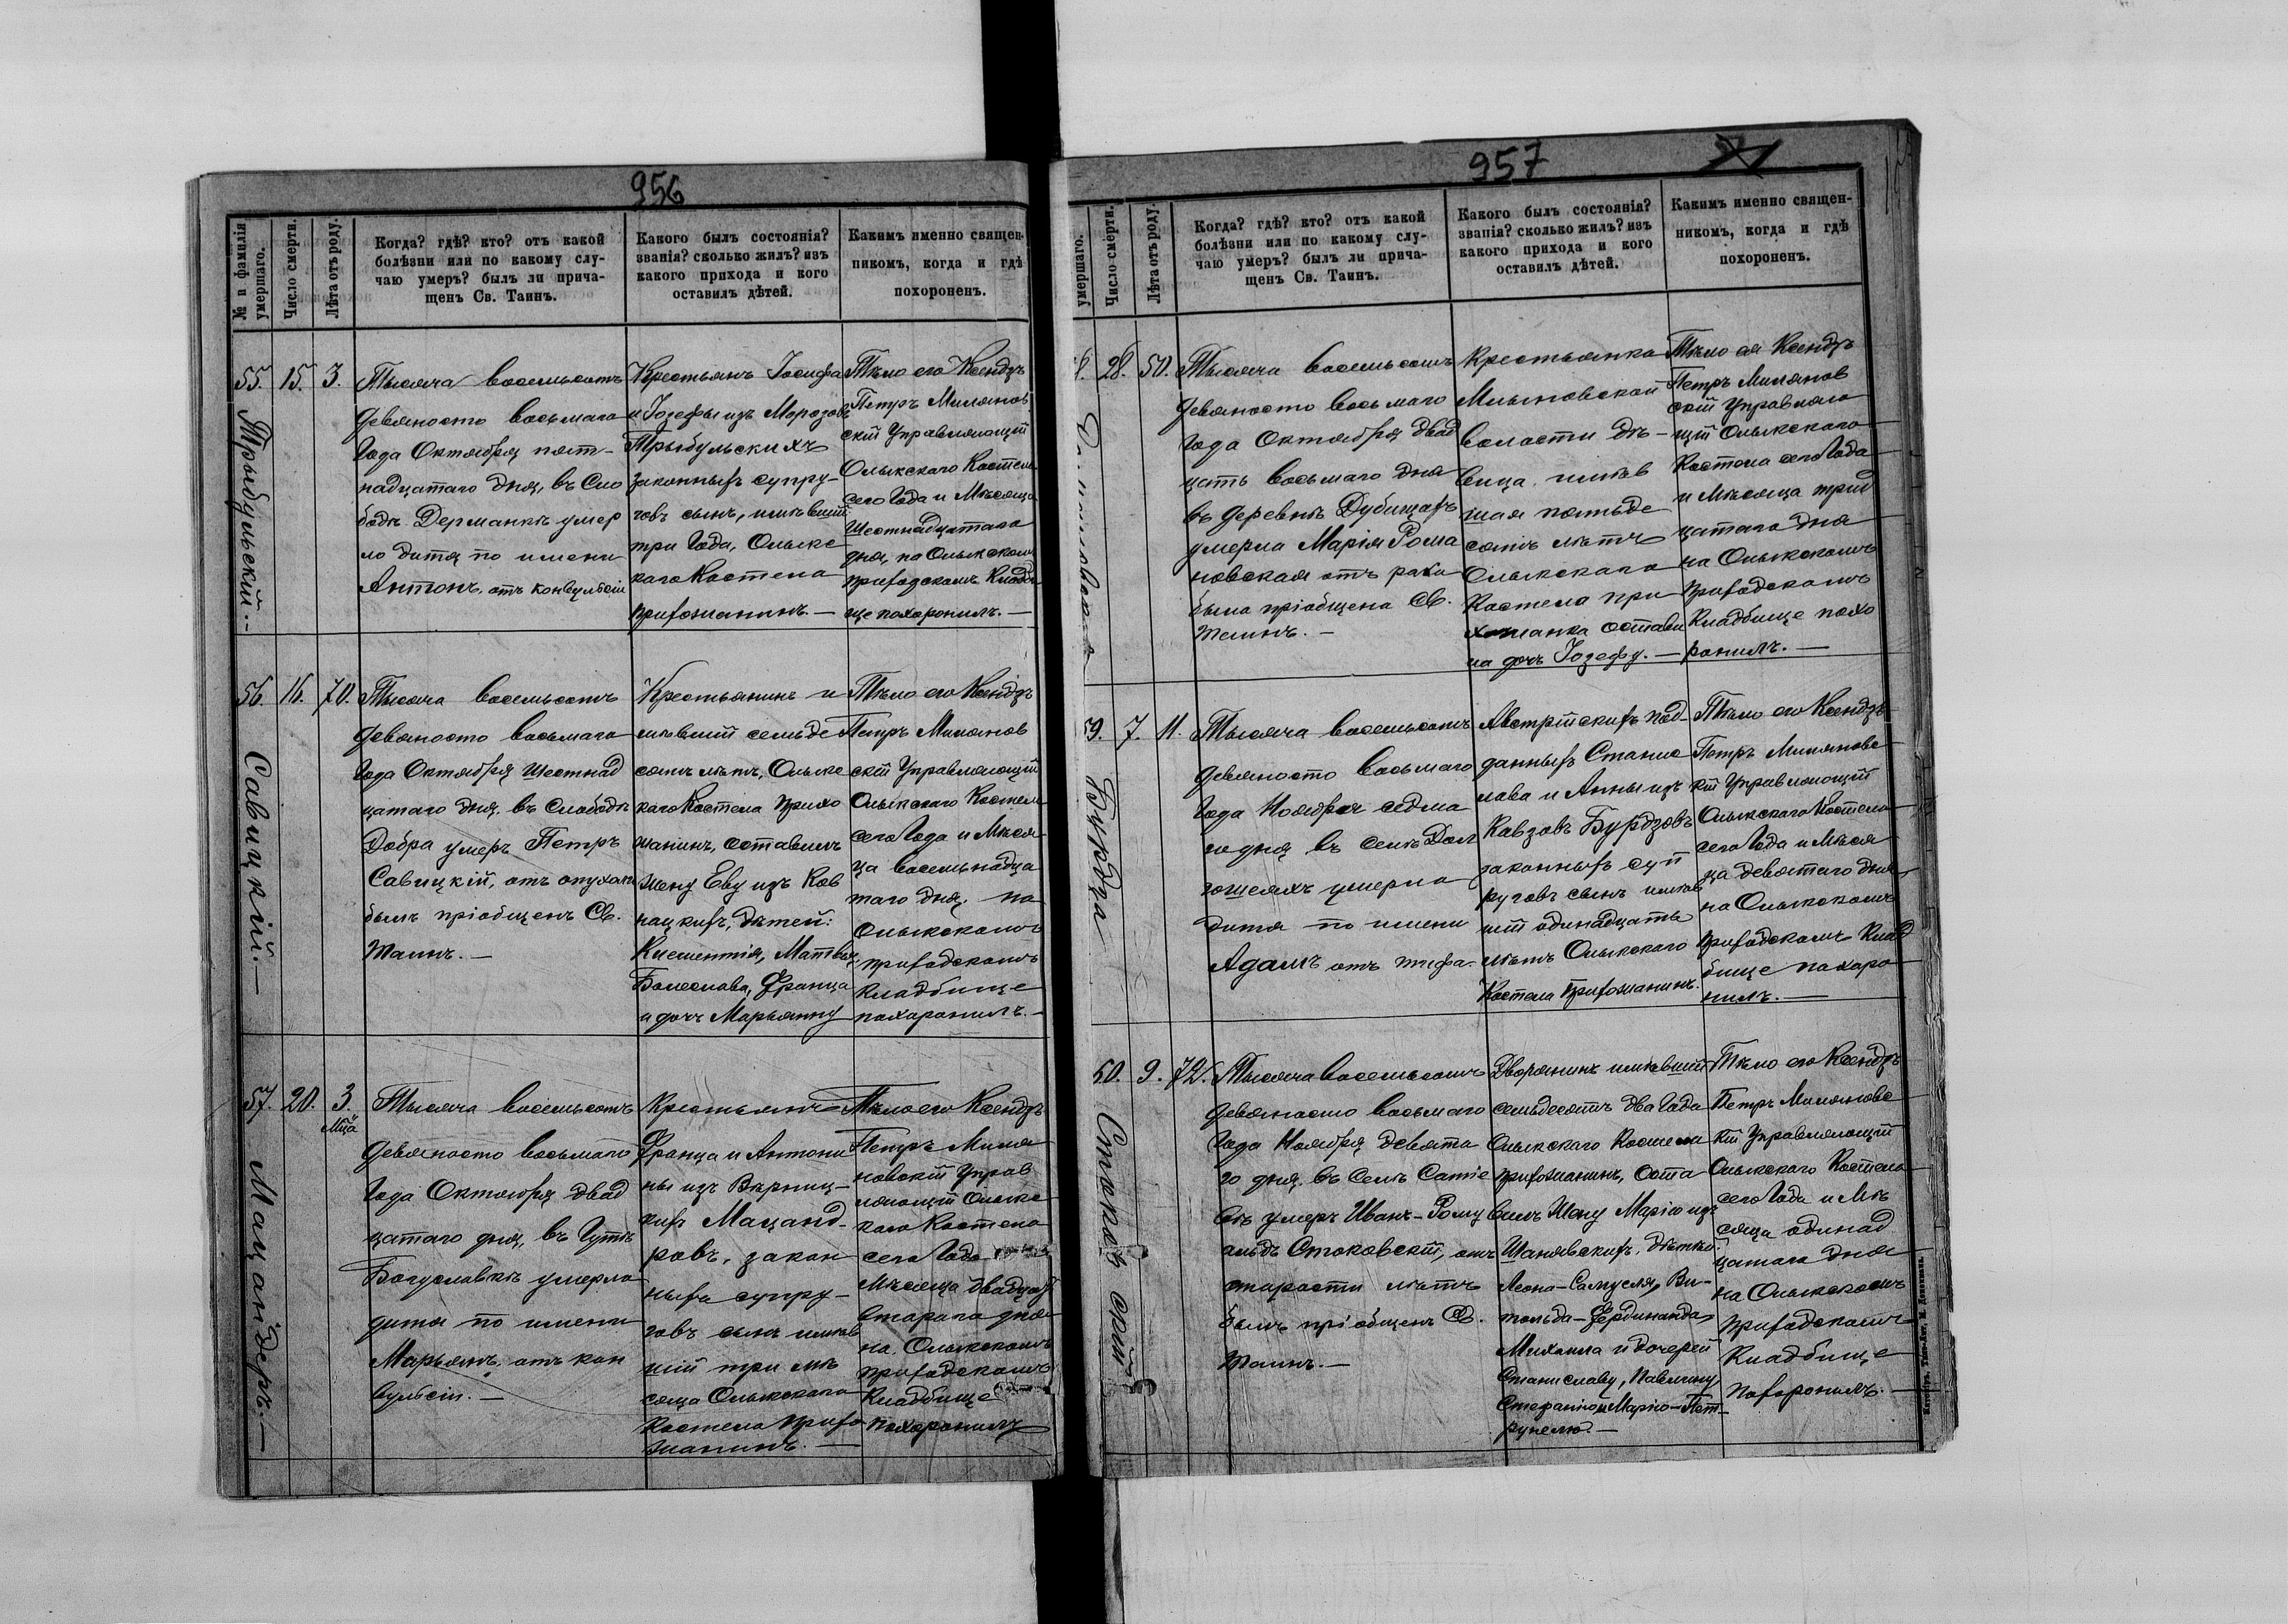 956
№ и фамилія умершаго.
Число смерти.
Лѣта отъ роду.
Когда? гдѣ? кто? отъ какой
болѣзни или по какому слу-
чаю умеръ? былъ ли прича-
щенъ Св. Таинъ.
Какого былъ состоянія?
званія? сколько жилъ? изъ
какого прихода и кого
оставилъ дѣтей.
Какимъ именно священ-
никомъ, когда и гдѣ
похороненъ.
55.
Трыбульскій.-
15.
3.
Тысяча восемьсотъ
девяносто восьмаго
Года Октября пят-
надцатаго дня, въ Сло
бодѣ Дерманкѣ умер
ло дитя по имени
Антонъ, отъ конвульсіи
Крестьянъ Іосифа
и Іозефы изъ Морозовъ
Трыбульскихъ
законныхъ супру-
говъ сынъ, имѣвшій
три Года, Олыкс
каго Костела
прихожанинъ.—
Тѣло его Ксендзъ
Петръ Милянов
скій Управляющій
Олыкскаго Костела
сего Года и Мѣсяца
Шестнадцатаго
дня, на Олыкскомъ
приходскомъ Кладби
ще похоронилъ.—
56.
Савицкій.—
16.
70.
Тысяча восемьсотъ
девяносто восьмаго
Года Октября Шестнад
цатаго дня, въ Слободѣ
Добра умеръ Петръ
Савицкій, отъ опухоли
былъ пріобщенъ Св.
Таинъ.—
Крестьянинъ и
мѣвшій семьде
сятъ лѣтъ, Олыкс
каго Костела прихо
жанинъ, оставилъ
жену Еву изъ Ков
нацкихъ, дѣтей:
Клементія, Матвѣя,
Болеслава, Франца
и дочь Марьянну
Тѣло его Ксендзъ
Петръ Милянов
скій Управляющій
Олыкскаго Костела
сего Года и Мѣся
ца восемьнадца
таго дня, на
Олыкскомъ
приходскомъ
кладбище
похоронилъ.-
57.
Мацандеръ.—
20.
3.
М-ца
Тысяча восемьсотъ
девяносто восьмаго
Года Октября двад
цатаго дня, въ Гутѣ
Богуславкѣ умерло
дитя по имени
Марьянъ, отъ кон
вульсіи.—
Крестьянъ
Франца и Антони
ны изъ Верниц-
кихъ Мацанд-
ровъ, закон
ныхъ супру-
говъ сынъ имѣв
шій три мѣ
сяца Олыкскаго
Костела прихо
жанинъ.—
Тѣло его Ксендзъ
Петръ Миля
новскій Управ
ляющій Олыкс
каго Костела
сего Года
Мѣсяца двадцать
втораго дня
на Олыкскомъ
приходскомъ
Кладбище
похоронилъ
957
умершаго.
Число смерти.
Лѣта отъ роду.
Когда? гдѣ? кто? отъ какой
болѣзни или по какому слу-
чаю умеръ? былъ ли прича-
щенъ Св. Таинъ.
Какого былъ состоянія?
званія? сколько жилъ? изъ
какого прихода и кого
оставилъ дѣтей.
Какимъ именно священ-
никомъ, когда и гдѣ
похороненъ.
8.
28.
50.
Тысяча восемьсотъ
девяносто восьмаго
Года Октября двад
цать восьмаго дня
въ деревнѣ Дубищахъ
умерла Марія Рома
новская отъ рака
была пріобщена Св.
Таинъ.—
Крестьянка
Млыновской
волости дѣ-
вица, имѣв
шая пятьде
сятъ лѣтъ
Олыкскаго
Костела при
хожанка остави
ла дочь Іозефу.—
Тѣло ея Ксендзъ
Петръ Милянов
скій Управляю
щій Олыкскаго
Костела сего Года
и Мѣсяца трид
цатаго дня
на Олыкскомъ
приходскомъ
Кладбище похо
ронилъ.—
9.
Бурдза
7.
11.
Тысяча восемьсотъ
девяносто восьмаго
Года Ноября седма
го дня въ селѣ Дол
гошеяхъ умерло
дитя по имени
Адамъ отъ тифа.
Австрійскихъ под-
данныхъ Станис
лава и Анны изъ
Кавзовъ Бурдзовъ
законныхъ суп
руговъ сынъ имѣв
шій одинадцать
лѣтъ Олыкскаго
Костела прихожанинъ.
Тѣло его Ксендзъ
Петръ Миляновс
кій Управляющій
Олыкскаго Костела
сего Года и Мѣся
ца девятаго дня
на Олыкскомъ
приходскомъ Клад
бище похоро
нилъ.—
60.
Стоковскій
9.
72.
Тысяча восемьсотъ
девяносто восьмаго
Года Ноября девята
го дня, въ Селѣ Сатіе
вѣ умеръ Иванъ-Рому
альдъ Стоковскій, отъ
старости лѣтъ
былъ пріобщенъ Св.
Таинъ.—
Дворянинъ имѣвшій
семьдесятъ два Года
Олыкскаго Костела
прихожанинъ, оста
вилъ Жену Марію изъ
Шанявскихъ, дѣтей:
Леона-Самуеля, Ви-
тольда-Фердинанда
Михаила и дочерей
Станиславу, Павлину
Стефанію и Марію-Пет-
рунелю.—
Тѣло его Ксендзъ
Петръ Миляновс
кій Управляющій
Олыкскаго Костела
сего Года и Мѣ
сяца одинад
цатаго дня
на Олыкскомъ
приходскомъ
Кладбище
похоронилъ.—